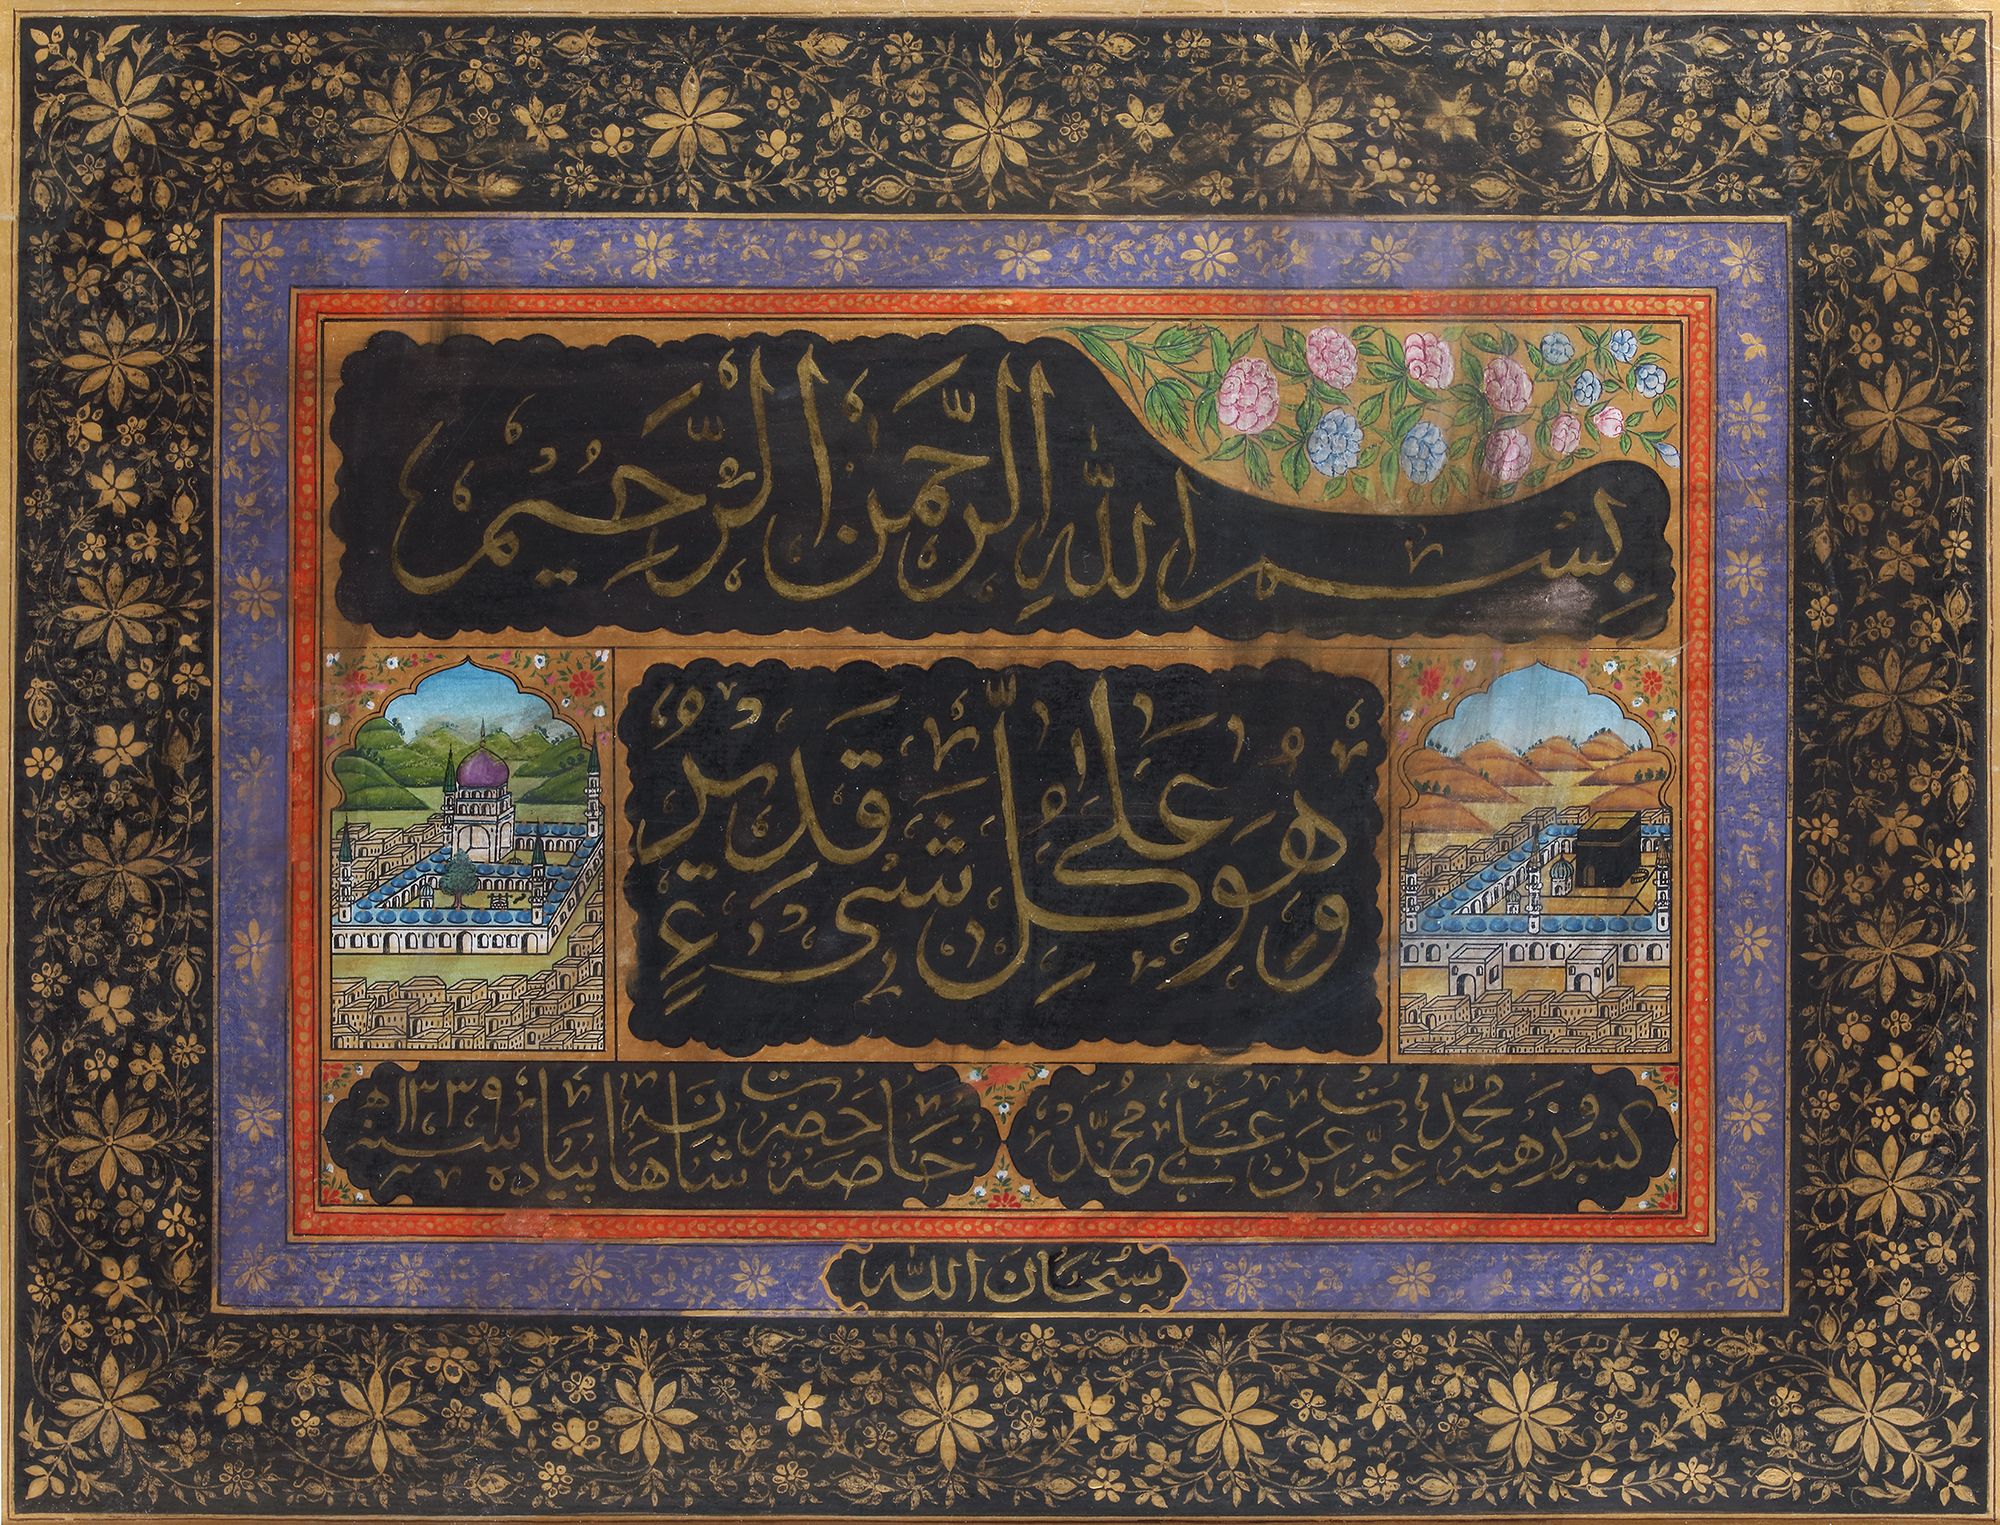 بِسْمِ اللّٰهِ الرَّحْمٰنِ الرَّحِيْمِ
وَهُوَ عَلٰى كُلِّ شَىْءٍ قَدِيْرٌ
كتبه وذهبه محمد عزت عن على محمد
خاصه حضرت شاهانه پیاده سنه ١٣٣٩ھ
سُبْحَانَ اللّٰه